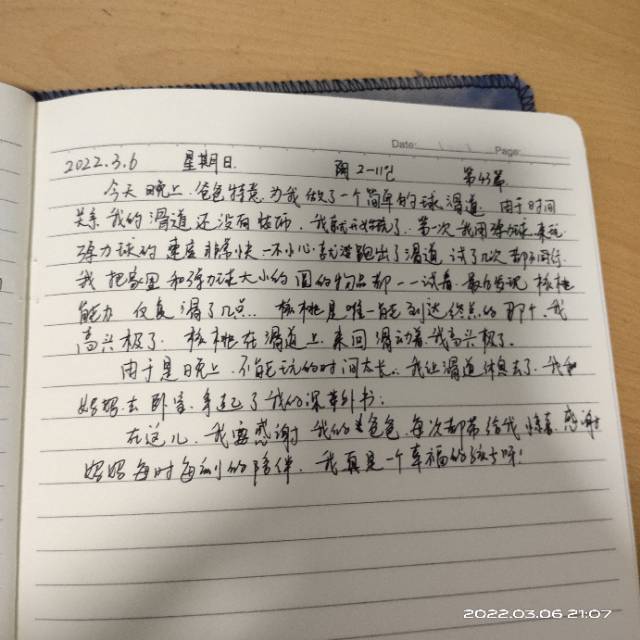 Date: Page:
2022.3.6 星期日 阴 2-11℃ 第43篇
今天晚上,爸爸特意为我做了一个简单的球滑道.由于时间
关系我的滑道还没有装饰,我就玩了.第一次我用弹力球来玩
弹力球的速度非常快一不小心就跑出了滑道,试了几次都
我把家里和弹力球大小的圆的物品都一一试着.最后发现核桃
能力 滑了几点..核桃是唯一能到达终点的那个.我
高兴极了.核桃在滑道上来回滑动着我高兴极了.
由于是晚上,不能玩的时间太长.我让滑道休息去了.我和
妈妈去卧室,拿起了我的课外书;
在这儿,我要感谢我的爸爸,每次都带给我惊喜.感谢
妈妈每时每刻的陪伴,我真是一个幸福的孩子呀!
2022.03.06 21:07